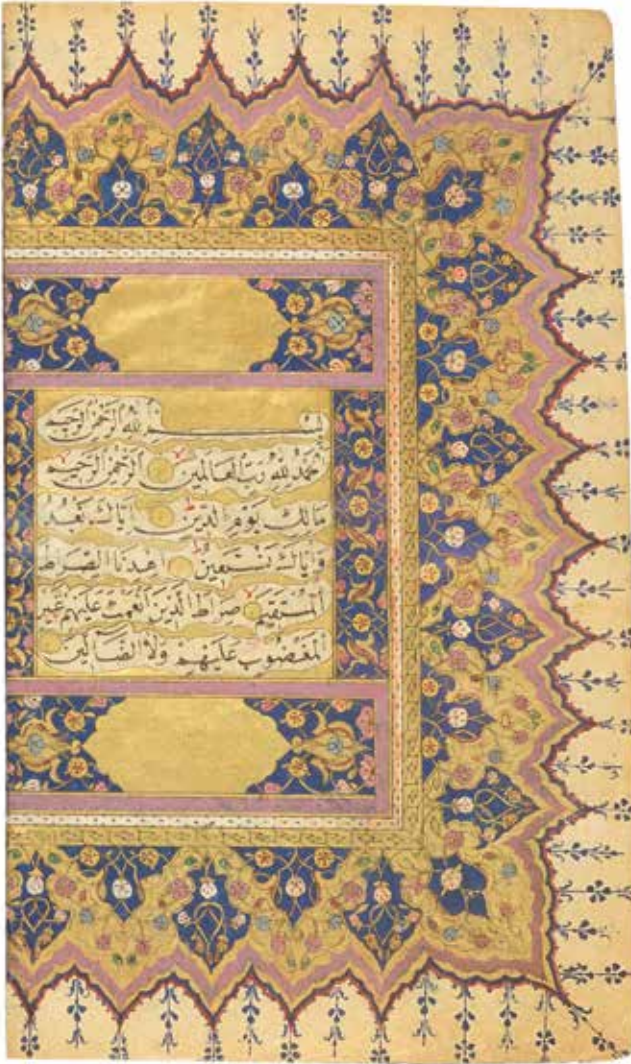 بِسْمِ اللهِ الرَّحْمٰنِ الرَّحِيمِ
اَلْحَمْدُ لِلّٰهِ رَبِّ الْعَالَمِينَ الرَّحْمٰنِ الرَّحِيمِ
مَالِكِ يَوْمِ الدِّينِ اِيَّاكَ نَعْبُدُ
وَاِيَّاكَ نَسْتَعِينُ اِهْدِنَا الصِّرَاطَ
الْمُسْتَقِيمَ صِرَاطَ الَّذِينَ اَنْعَمْتَ عَلَيْهِمْ غَيْرِ
الْمَغْضُوبِ عَلَيْهِمْ وَلَا الضَّالِّينَ